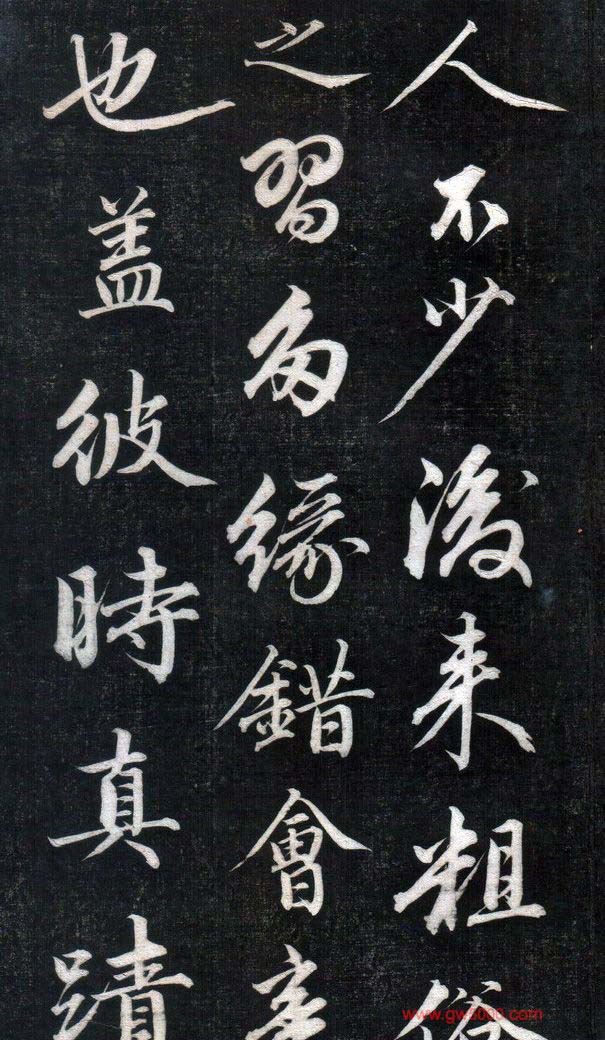 人不少後来粗俗
之習多緣錯會
也盖彼時真蹟
www.gw5000.com